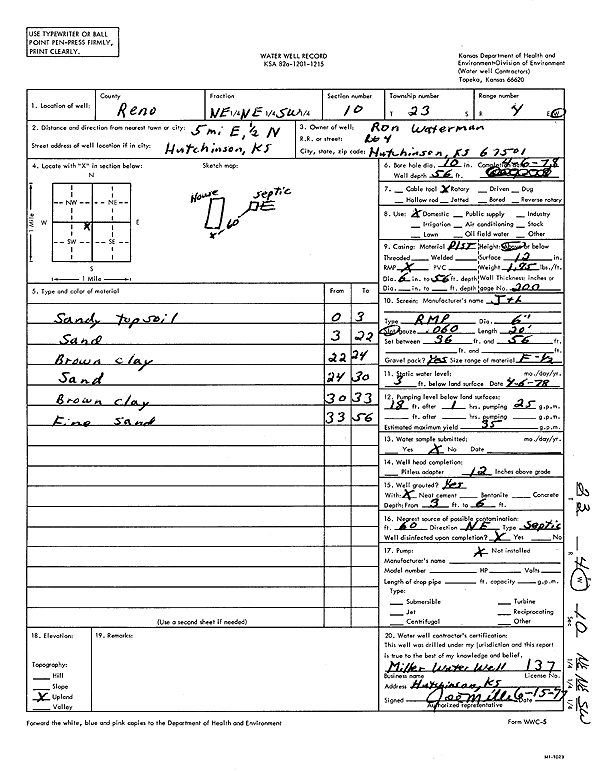 USE TYPEWRITER OR BALL
POINT PEN-PRESS FIRMLY,
PRINT CLEARLY.
WATER WELL RECORD
KSA 82a-1201-1215
Kansas Department of Health and
Environment-Division of Environment
(Water well Contractors)
Topeka, Kansas 66620
1. Location of well:
County
Reno
Fraction
NE 1/4 NE 1/4 SW 1/4
Section number
10
Township number
T 23 S
Range number
R 4 E W
2. Distance and direction from nearest town or city: 5 mi E, 1/2 N
Street address of well location if in city: Hutchinson, KS
3. Owner of well: Ron Waterman
R.R. or street: Rt 4
City, state, zip code: Hutchinson, KS 67501
4. Locate with "X" in section below:
Sketch map:
N
NW NE
W X E
SW SE
S
1 Mile
1 Mile
House
septic
60
X
6. Bore hole dia. 10 in. Completion date 4-6-78
Well depth 56 ft.
7. Cable tool X Rotary Driven Dug
Hollow rod Jetted Bored Reverse rotary
8. Use: X Domestic Public supply Industry
Irrigation Air conditioning Stock
Lawn Oil field water Other
9. Casing: Material Plst Height: Above or below
Threaded Welded Surface 12 in.
RMP X PVC Weight 1.95 lbs./ft.
Dia. 6 in. to 56 ft. depth Wall Thickness: inches or
Dia. in. to ft. depth gage No. 200
5. Type and color of material
From To
Sandy topsoil 0 3
Sand 3 22
Brown clay 22 24
Sand 24 30
Brown clay 30 33
Fine sand 33 56
(Use a second sheet if needed)
10. Screen: Manufacturer's name
Type RMP Dia. 6"
Slot/gauze .060 Length 20'
Set between 36 ft. and 56 ft.
ft. and ft.
Gravel pack? Yes Size range of material
11. Static water level: mo./day/yr.
3 ft. below land surface Date 4-6-78
12. Pumping level below land surfaces:
18 ft. after 1 hrs. pumping 25 g.p.m.
ft. after hrs. pumping g.p.m.
Estimated maximum yield 35 g.p.m.
13. Water sample submitted: mo./day/yr.
Yes X No Date
14. Well head completion:
Pitless adapter 12 Inches above grade
15. Well grouted? Yes
With: X Neat cement Bentonite Concrete
Depth: From 3 ft. to 6 ft.
16. Nearest source of possible contamination:
ft. 60 Direction NE Type Septic
Well disinfected upon completion? X Yes No
17. Pump: X Not installed
Manufacturer's name
Model number HP Volts
Length of drop pipe ft. capacity g.p.m.
Type:
Submersible Turbine
Jet Reciprocating
Centrifugal Other
18. Elevation:
Topography:
Hill
Slope
X Upland
Valley
19. Remarks:
20. Water well contractor's certification:
This well was drilled under my jurisdiction and this report
is true to the best of my knowledge and belief.
Miller Water Well 137
Business name License No.
Address Hutchinson, KS
Signed Joe Miller 6-15-77
Authorized representative Date
Forward the white, blue and pink copies to the Department of Health and Environment
Form WWC-5
T 23 R 4 W Sec 10 1/4 1/4 1/4 NE NE SW